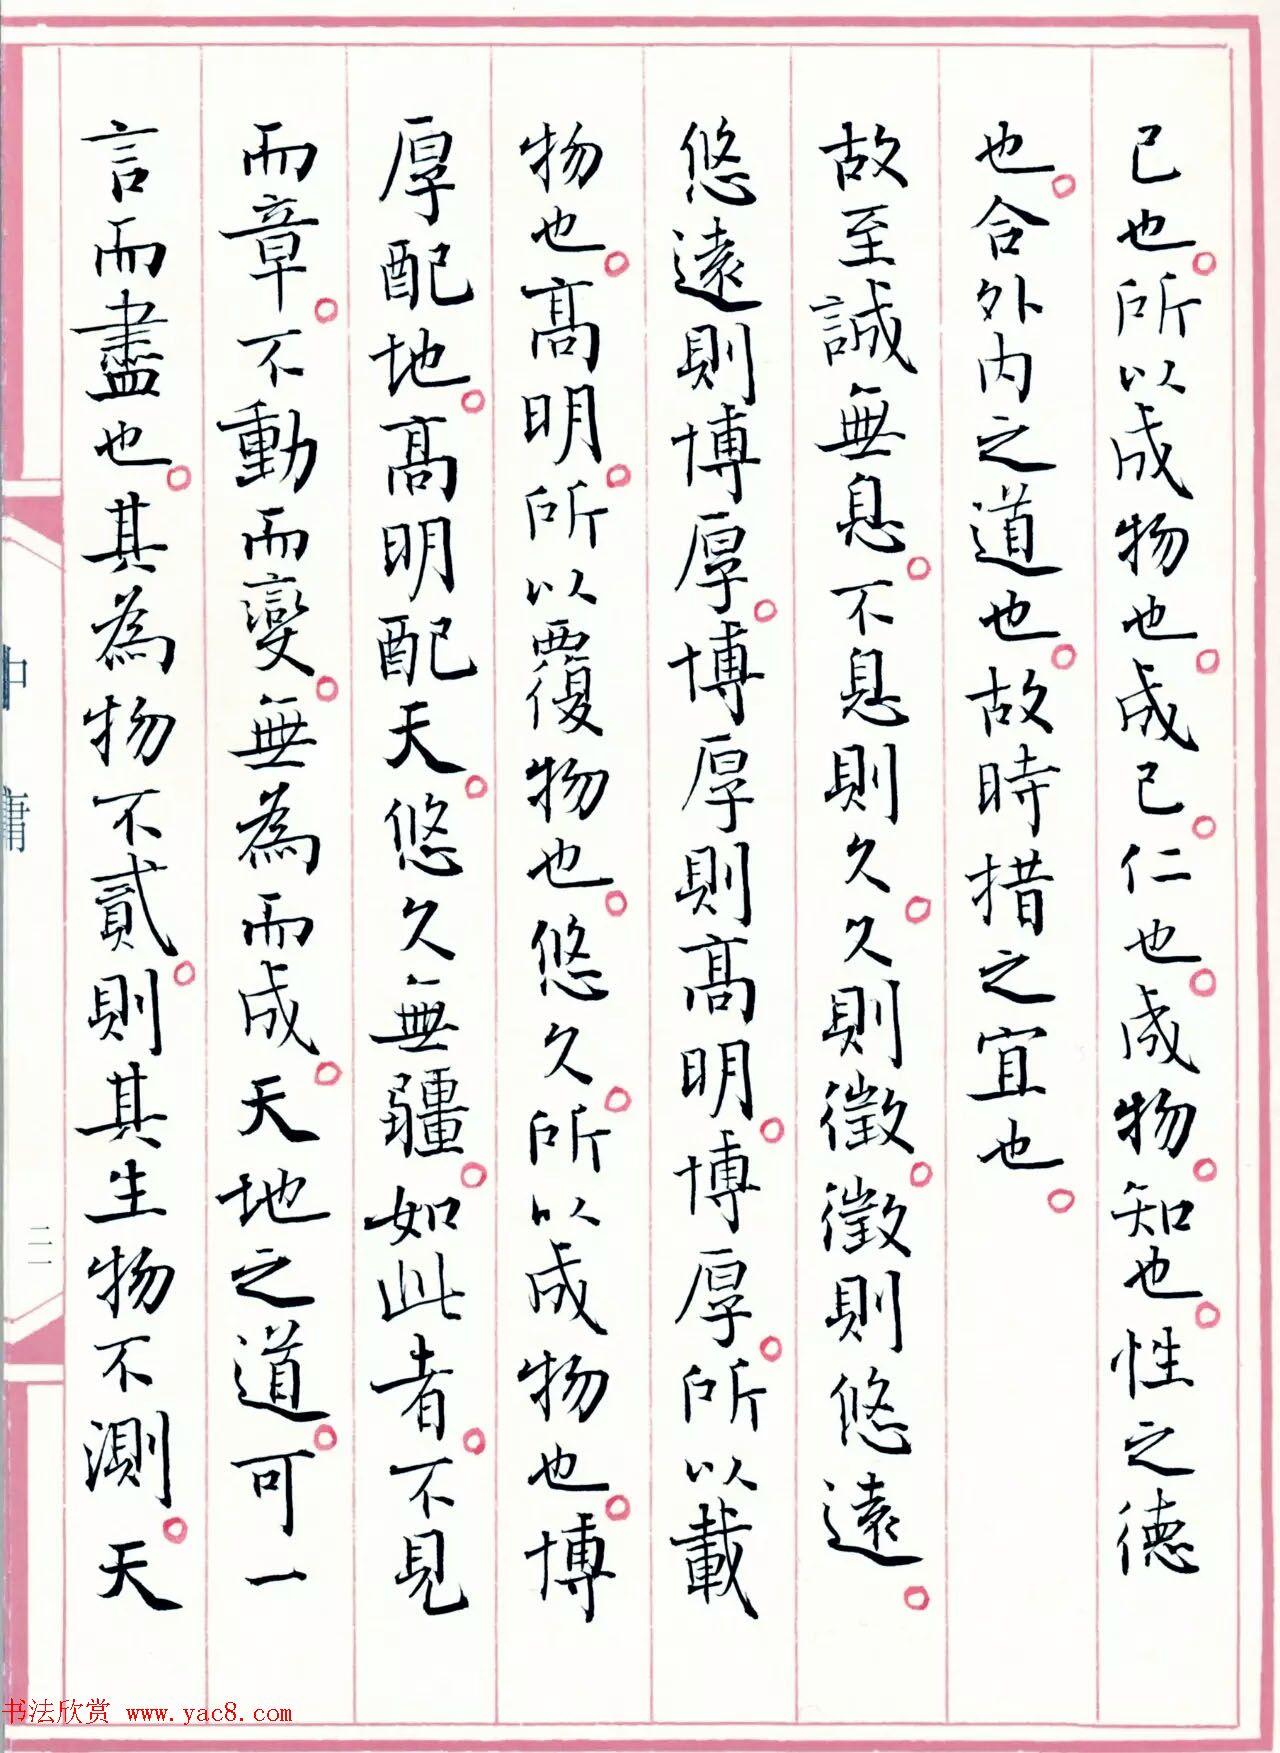 己也。所以成物也。成己。仁也。成物。知也。性之德
也。合外内之道也。故時措之宜也。
故至誠無息。不息則久。久則徵。徵則悠遠。
悠遠則博厚。博厚則高明。博厚。所以載
物也。高明。所以覆物也。悠久。所以成物也。博
厚配地。高明配天。悠久無疆。如此者。不見
而章。不動而變。無為而成。天地之道。可一
言而盡也。其為物不貳。則其生物不測。天
中庸
二一
书法欣赏 www.yac8.com